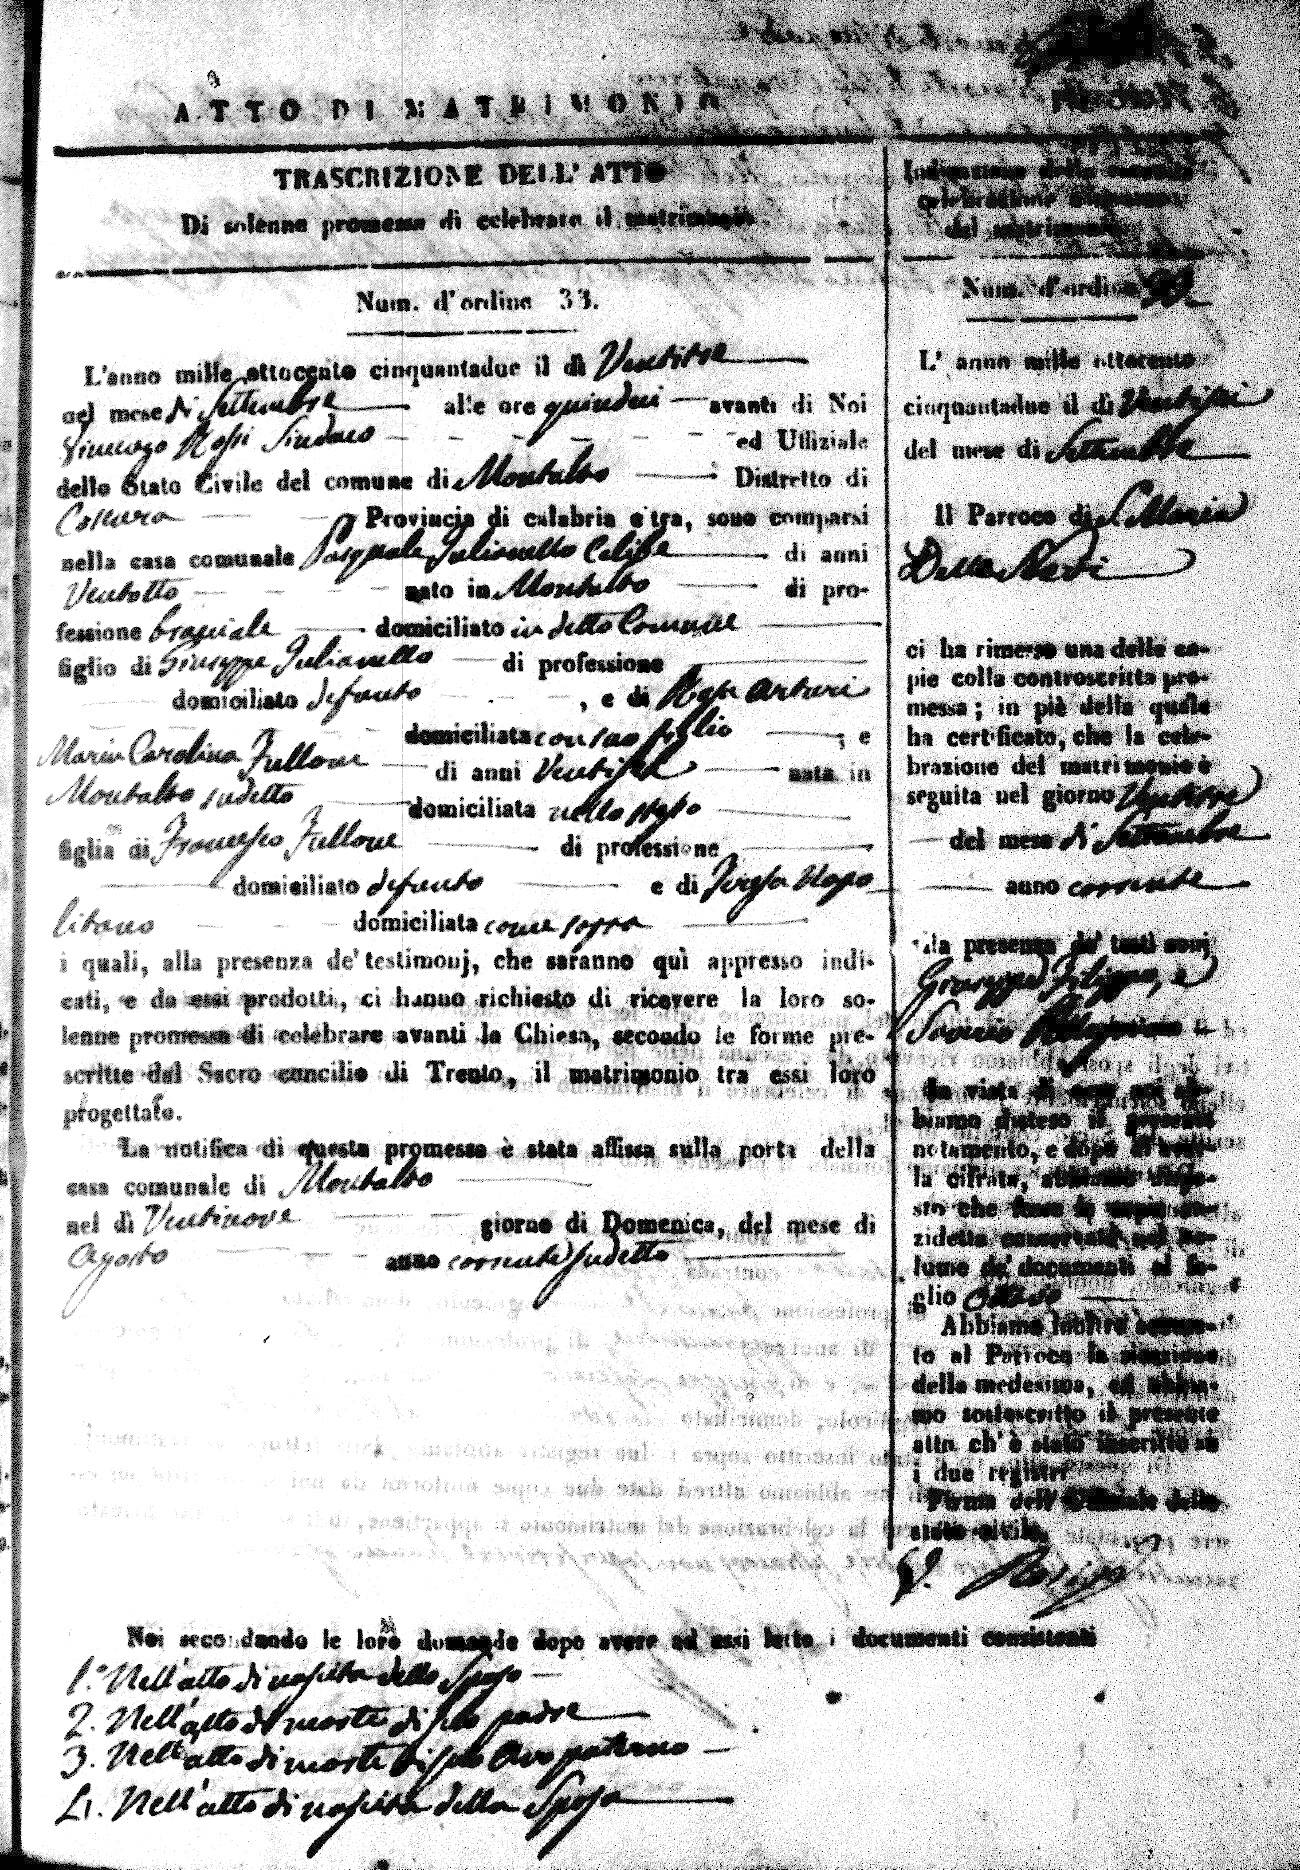 ATTO DI MATRIMONIO
TRASCRIZIONE DELL' ATTO
Di solenne promessa di celebrare il matrimonio
Num. d'ordine 33.
L'anno mille ottocento cinquantadue il dì Ventitre
nel mese di Settembre alle ore quindici avanti di Noi
Vincenzo Rossi Sindaco ed Uffiziale
dello Stato Civile del comune di Montalto Distretto di
Cosenza Provincia di calabria citra, sono comparsi
nella casa comunale Pasquale Julianello Celibe di anni
Ventotto nato in Montalto di pro-
fessione braciale domiciliato in detto Comune
figlio di Giuseppe Julianello di professione
domiciliato defunto , e di Rosa Arturi
domiciliata con suo figlio ; e
Maria Carolina Fullone di anni Ventisei nata in
Montalto sudetto domiciliata nello stesso
figlia di Francesco Fullone di professione
domiciliato defunto e di Teresa Napo
litano domiciliata come sopra
i quali, alla presenza de' testimonj, che saranno quì appresso indi-
cati, e da essi prodotti, ci hanno richiesto di ricevere la loro so-
lenne promessa di celebrare avanti la Chiesa, secondo le forme pre-
scritte dal Sacro concilio di Trento, il matrimonio tra essi loro
progettato.
La notifica di questa promessa è stata affissa sulla porta della
casa comunale di Montalto
nel dì Ventinove giorno di Domenica, del mese di
Agosto anno corrente sudetto
Indicazione della seguita
celebrazione
del matrimonio
Num. d'ordine 33
L' anno mille ottocento
cinquantadue il dì Ventisei
del mese di Settembre
Il Parroco di S. Maria
Della Neve
ci ha rimesso una delle co-
pie colla controscritta pro-
messa; in piè della quale
ha certificato, che la cele-
brazione del matrimonio è
seguita nel giorno Ventitre
del mese di Settembre
anno corrente
alla presenza de' testimonj
Giuseppe Filippo, e
Saverio
In vista di essa noi ab-
biamo disteso il presente
notamento, e dopo di aver-
la cifrata, abbiamo dispo-
sto che fosse la copia an-
zidetta conservata nel vo-
lume de' documenti al fo-
glio ottavo
Abbiamo inoltre accusa-
to al Parroco la ricezione
della medesima, ed abbia-
mo sottoscritto il presente
atto, ch' è stato inscritto su
i due registri
Firma dell' Uffiziale dello
stato civile
V. Rossi
Noi secondando le loro domande dopo avere ad essi letto i documenti consistenti
1.° Nell'atto di nascita dello Sposo
2. Nell'atto di morte di suo padre
3. Nell'atto di morte di suo Avo paterno
4. Nell'atto di nascita della Sposa